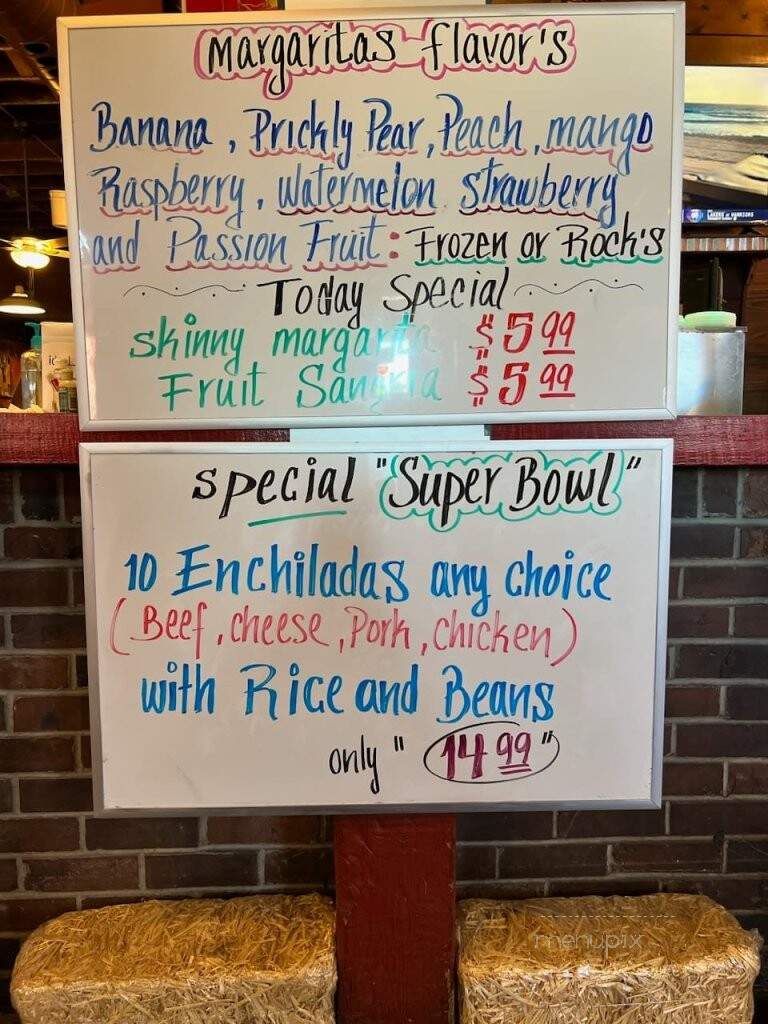 margaritas flavor's
Banana, Prickly Pear, Peach, mango
Raspberry, watermelon strawberry
and Passion Fruit: Frozen or Rock's
Today Special
skinny margarita $5.99
Fruit Sangria $5.99
special "Super Bowl"
10 Enchiladas any choice
(Beef, cheese, Pork, chicken)
with Rice and Beans
only "14.99"
LAKERS at WARRIORS
menupix